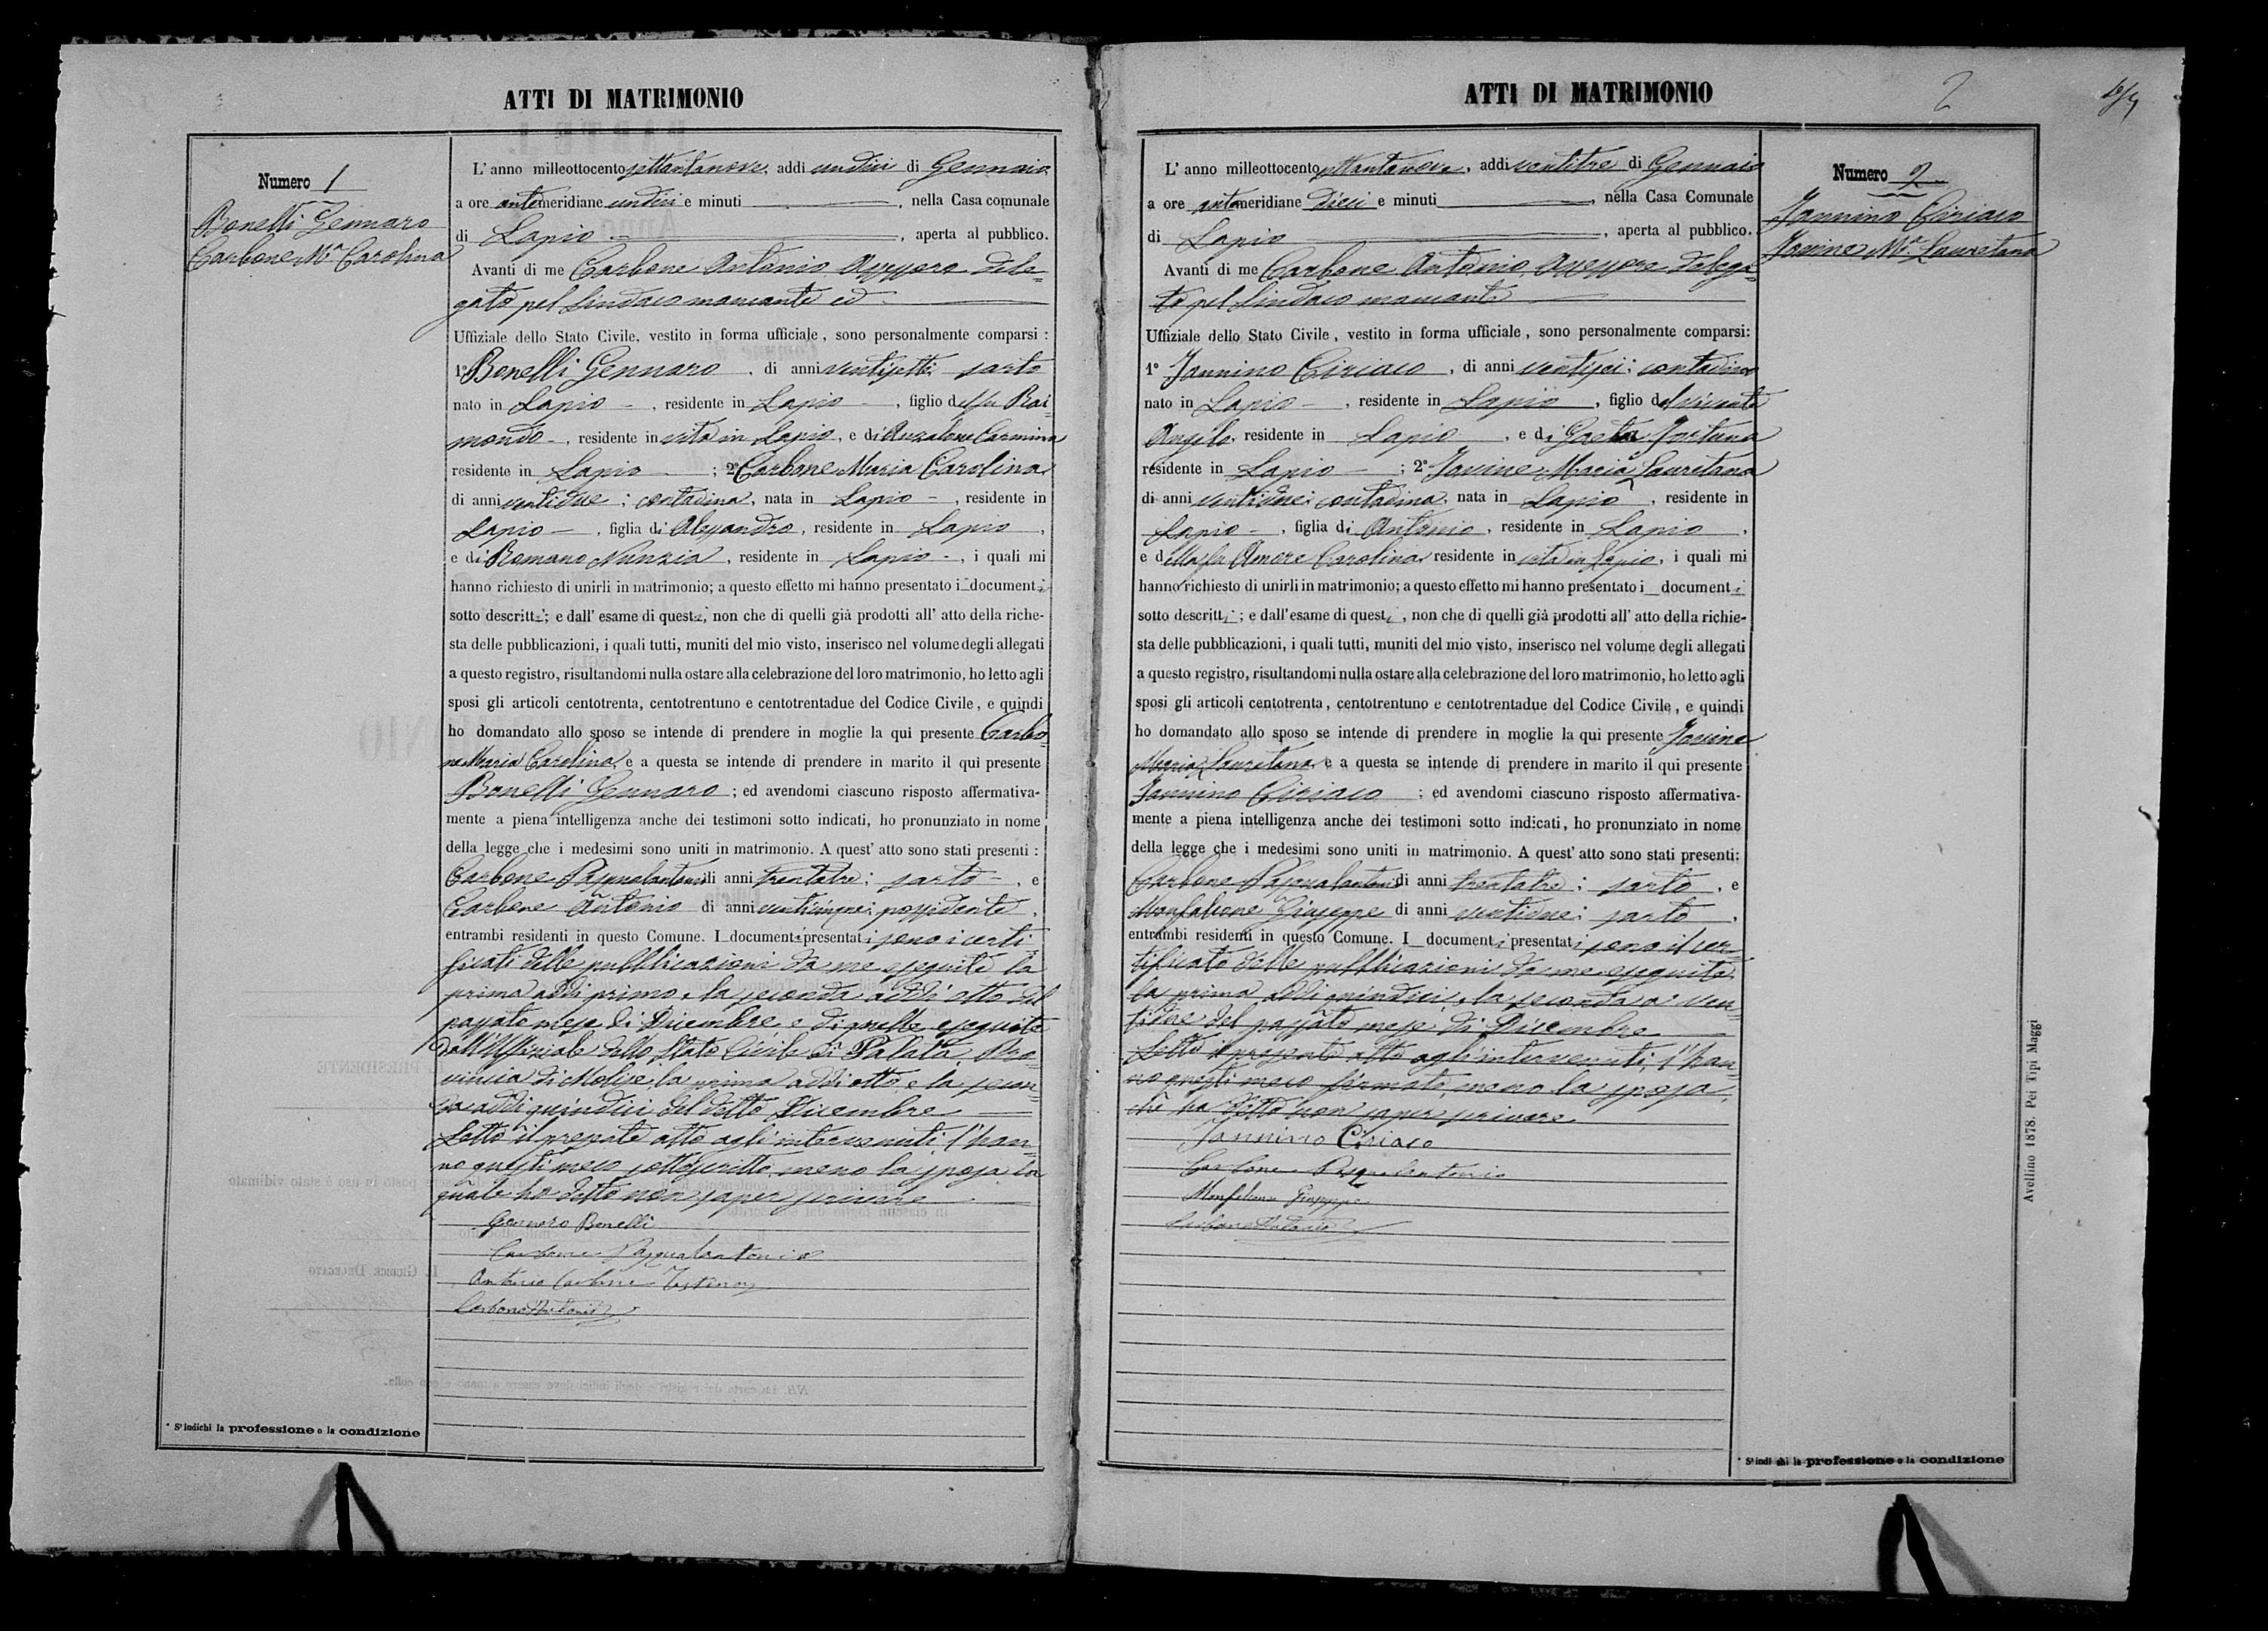 ATTI DI MATRIMONIO
Numero 1
Bonelli Gennaro
Carbone Mª Carolina
L'anno milleottocento settantanove, addi undici di Gennaio
a ore antemeridiane undici e minuti , nella Casa comunale
di Lapio , aperta al pubblico.
Avanti di me Carbone Antonio Assessore dele-
gato pel Sindaco mancante ed
Uffiziale dello Stato Civile, vestito in forma ufficiale, sono personalmente comparsi :
1º Bonelli Gennaro , di anni ventisette sarto
nato in Lapio , residente in Lapio , figlio del fu Rai-
mondo , residente in vita in Lapio , e di Anzalone Carmina
residente in Lapio ; 2º Carbone Maria Carolina
di anni ventidue ; contadina, nata in Lapio , residente in
Lapio , figlia di Alessandro, residente in Lapio ,
e di Romano Nunzia , residente in Lapio , i quali mi
hanno richiesto di unirli in matrimonio; a questo effetto mi hanno presentato i documenti
sotto descritti; e dall' esame di questi, non che di quelli già prodotti all' atto della riche-
sta delle pubblicazioni, i quali tutti, muniti del mio visto, inserisco nel volume degli allegati
a questo registro, risultandomi nulla ostare alla celebrazione del loro matrimonio, ho letto agli
sposi gli articoli centotrenta, centotrentuno e centotrentadue del Codice Civile, e quindi
ho domandato allo sposo se intende di prendere in moglie la qui presente Carbo-
ne Maria Carolina, e a questa se intende di prendere in marito il qui presente
Bonelli Gennaro ; ed avendomi ciascuno risposto affermativa-
mente a piena intelligenza anche dei testimoni sotto indicati, ho pronunziato in nome
della legge che i medesimi sono uniti in matrimonio. A quest' atto sono stati presenti :
Carbone Pasqualantonio di anni trentatre ; sarto , e
Carbone Antonio di anni venticinque ; possidente ,
entrambi residenti in questo Comune. I documenti presentati sono i certi-
ficati delle pubblicazioni da me eseguite la
prima addì primo, e la seconda addì otto del
passato mese di Dicembre, e di quelle eseguite
dall'Uffiziale dello Stato Civile di Palata, Pro-
vincia di Molise, la prima addì otto, e la secon-
da addì quindici del detto Dicembre
Letto il presente atto agli intervenuti, l'han-
no questi meco sottoscritto, meno la sposa la
quale ha detto non saper scrivere
Gennaro Bonelli
Carbone Pasqualantonio
Antonio Carbone Testimone
Carbone Antonio
* Si indichi la professione o la condizione
ATTI DI MATRIMONIO
2
L' anno milleottocento settantanove, addi ventitre di Gennaio
a ore antemeridiane dieci e minuti , nella Casa Comunale
di Lapio , aperta al pubblico.
Avanti di me Carbone Antonio, Assessore delega-
to pel Sindaco mancante
Uffiziale dello Stato Civile, vestito in forma ufficiale, sono personalmente comparsi:
1º Jannino Ciriaco , di anni ventisei ; contadino
nato in Lapio , residente in Lapio , figlio del vivente
Angelo, residente in Lapio , e di Gaeta Fortuna
residente in Lapio ; 2º Jovine Maria Lauretana
di anni ventidue ; contadina, nata in Lapio , residente in
Lapio , figlia di Antonio , residente in Lapio ,
e della fu Amore Carolina, residente in vita in Lapio, i quali mi
hanno richiesto di unirli in matrimonio; a questo effetto mi hanno presentato i documenti
sotto descritti ; e dall' esame di questi , non che di quelli già prodotti all' atto della richie-
sta delle pubblicazioni, i quali tutti, muniti del mio visto, inserisco nel volume degli allegati
a questo registro, risultandomi nulla ostare alla celebrazione del loro matrimonio, ho letto agli
sposi gli articoli centotrenta, centotrentuno e centotrentadue del Codice Civile, e quindi
ho domandato allo sposo se intende di prendere in moglie la qui presente Jovine
Maria Lauretana, e a questa se intende di prendere in marito il qui presente
Jannino Ciriaco ; ed avendomi ciascuno risposto affermativa-
mente a piena intelligenza anche dei testimoni sotto indicati, ho pronunziato in nome
della legge che i medesimi sono uniti in matrimonio. A quest' atto sono stati presenti:
Carbone Pasqualantonio di anni trentatre ; sarto , e
Monfalcone Giuseppe di anni ventidue ; sarto ,
entrambi residenti in questo Comune. I documenti presentati sono il cer-
tificato delle pubblicazioni da me eseguite
la prima addì quindici, e la seconda a' ven-
tidue del passato mese di Dicembre
Letto il presente atto agli intervenuti, l'han-
no questi meco firmato, meno la sposa,
che ha detto non saper scrivere
Jannino Ciriaco
Carbone Pasqualantonio
Monfalcone Giuseppe
Carbone Antonio
Numero 2
Jannino Ciriaco
Jovine Mª Lauretana
Avellino 1878. Pei Tipi Maggi
* Si indichi la professione o la condizione